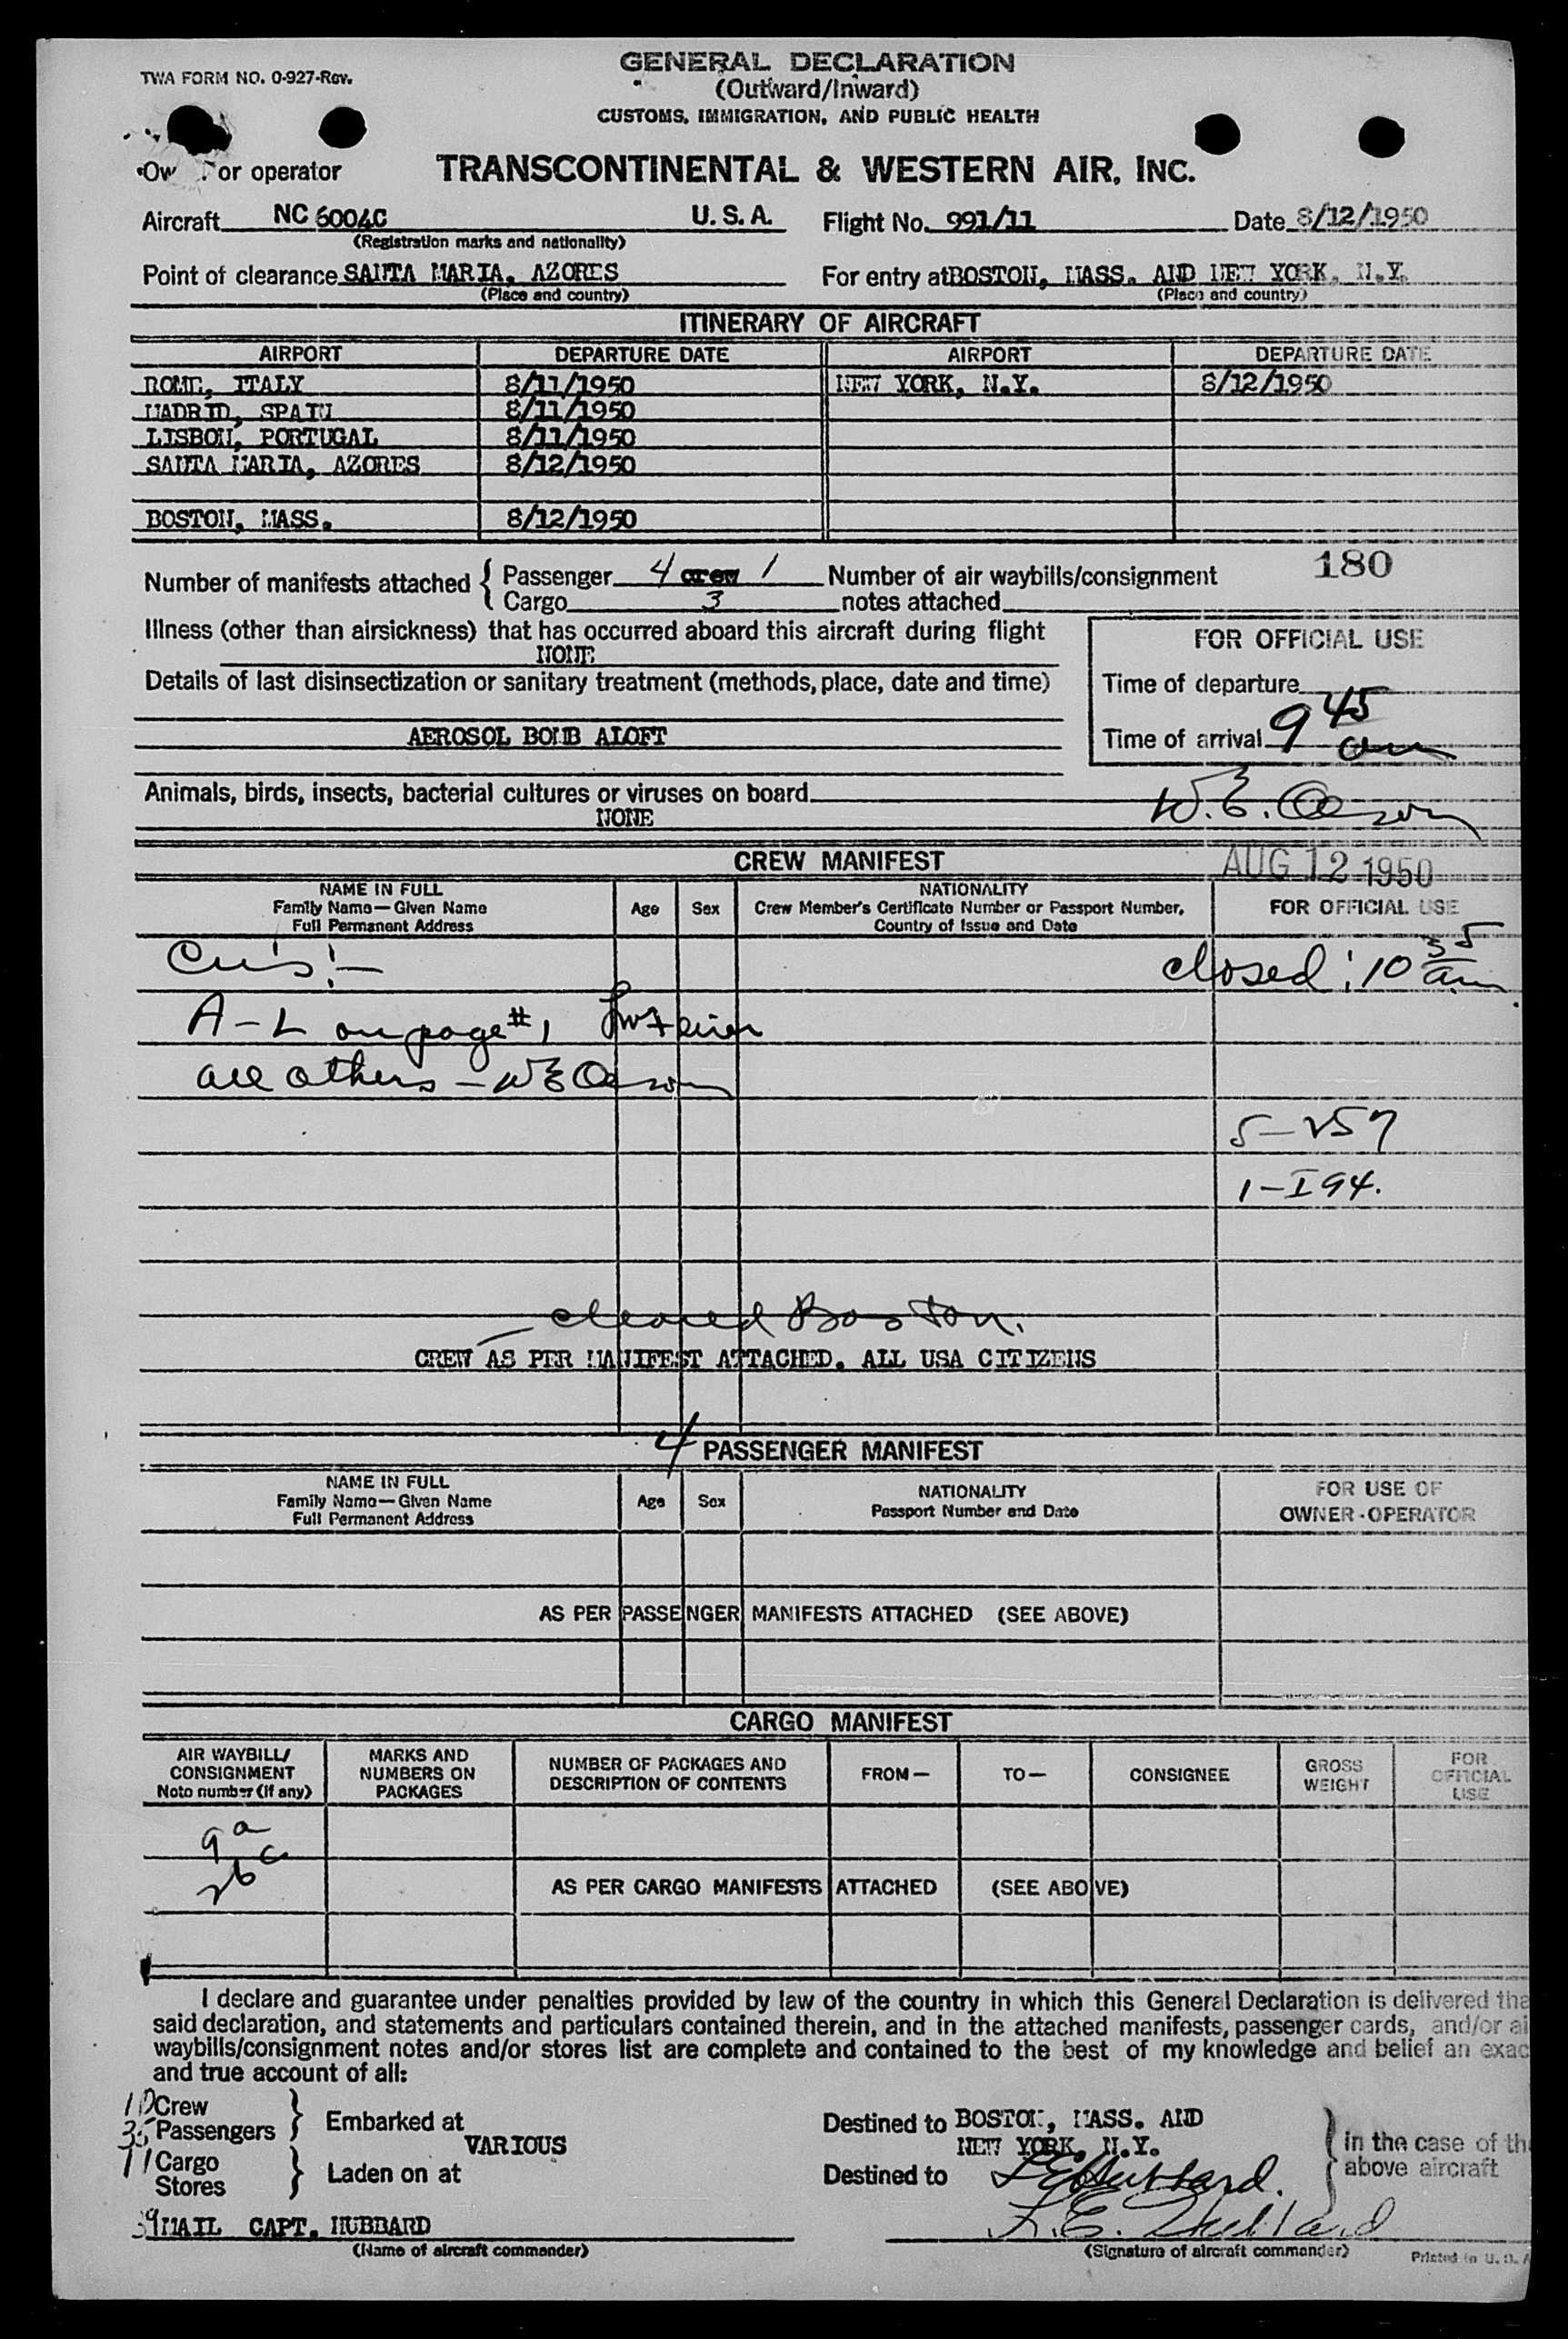 TWA FORM NO. O-927-Rev.
GENERAL DECLARATION
(Outward/Inward)
CUSTOMS, IMMIGRATION, AND PUBLIC HEALTH
Ow or operator TRANSCONTINENTAL & WESTERN AIR, INC.
Aircraft NC 6004C U. S. A. Flight No. 991/11 Date 8/12/1950
(Registration marks and nationality)
Point of clearance SANTA MARIA, AZORES For entry at BOSTON, MASS. AND NEW YORK, N.Y.
(Place and country) (Place and country)
ITINERARY OF AIRCRAFT
AIRPORT DEPARTURE DATE AIRPORT DEPARTURE DATE
ROME, ITALY 8/11/1950 NEW YORK, N.Y. 8/12/1950
MADRID, SPAIN 8/11/1950
LISBON, PORTUGAL 8/11/1950
SANTA MARIA, AZORES 8/12/1950
BOSTON, MASS. 8/12/1950
180
Number of manifests attached { Passenger 4 crew 1 Number of air waybills/consignment
Cargo 3 notes attached
Illness (other than airsickness) that has occurred aboard this aircraft during flight
NONE
FOR OFFICIAL USE
Details of last disinsectization or sanitary treatment (methods, place, date and time)
Time of departure
AEROSOL BOMB ALOFT
Time of arrival 9 45 am
Animals, birds, insects, bacterial cultures or viruses on board
NONE
W. E.
CREW MANIFEST
AUG 12 1950
NAME IN FULL
Family Name—Given Name
Full Permanent Address
Age Sex
NATIONALITY
Crew Member's Certificate Number or Passport Number,
Country of Issue and Date
FOR OFFICIAL USE
closed: 10 35 am.
A-L on page #1
all others - WE
5-257
1-I94.
- cleared Boston.
CREW AS PER MANIFEST ATTACHED. ALL USA CITIZENS
4 PASSENGER MANIFEST
NAME IN FULL
Family Name—Given Name
Full Permanent Address
Age Sex
NATIONALITY
Passport Number and Date
FOR USE OF
OWNER-OPERATOR
AS PER PASSENGER MANIFESTS ATTACHED (SEE ABOVE)
CARGO MANIFEST
AIR WAYBILL/
CONSIGNMENT
Note number (if any)
MARKS AND
NUMBERS ON
PACKAGES
NUMBER OF PACKAGES AND
DESCRIPTION OF CONTENTS
FROM— TO— CONSIGNEE
GROSS
WEIGHT
FOR
OFFICIAL
USE
9 a
26 c
AS PER CARGO MANIFESTS ATTACHED (SEE ABOVE)
I declare and guarantee under penalties provided by law of the country in which this General Declaration is delivered tha
said declaration, and statements and particulars contained therein, and in the attached manifests, passenger cards, and/or ai
waybills/consignment notes and/or stores list are complete and contained to the best of my knowledge and belief an exac
and true account of all:
10 Crew
35 Passengers } Embarked at VARIOUS Destined to BOSTON, MASS. AND
NEW YORK, N.Y.
11 Cargo
Stores } Laden on at Destined to L E Hubbard.
in the case of th
above aircraft
39 MAIL CAPT. HUBBARD L. E. Hubbard
(Name of aircraft commander) (Signature of aircraft commander)
Printed in U. S. A